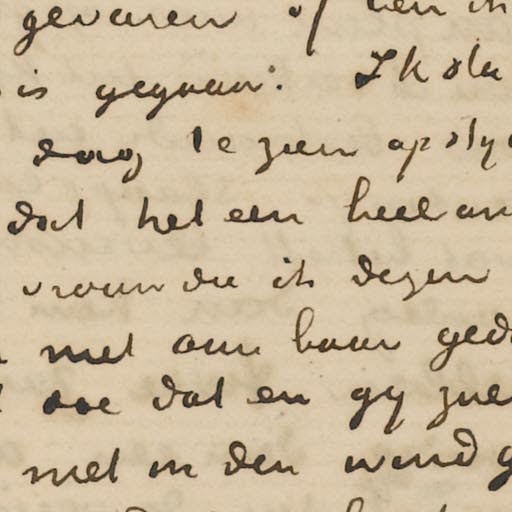 gevaren of een ik
is gegaan. Ik sta
dag te zien op zij
dat het een heel an
vrouw die ik dezen
met aan haar geda
doe dat en gij zue
met in den wind g